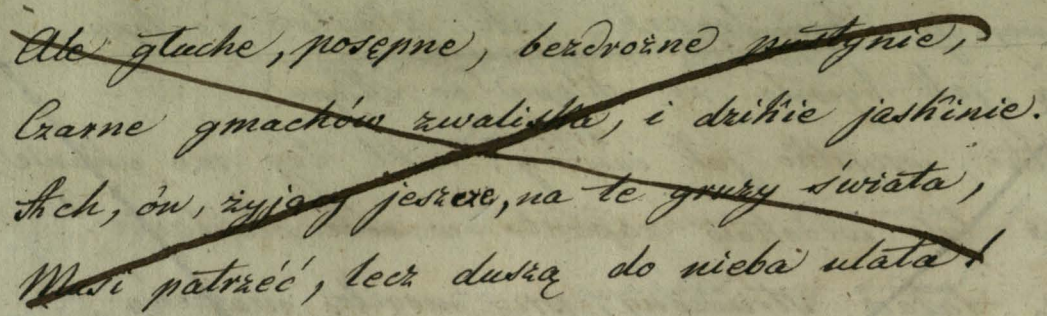 Ale głuche, posępne, bezdrożne pustynie,
Czarne gmachów zwaliska, i dzikie jaskinie.
Ach, ów, żyjący jeszcze, na te gruzy świata,
Musi patrzéć, lecz duszą do nieba ulata!